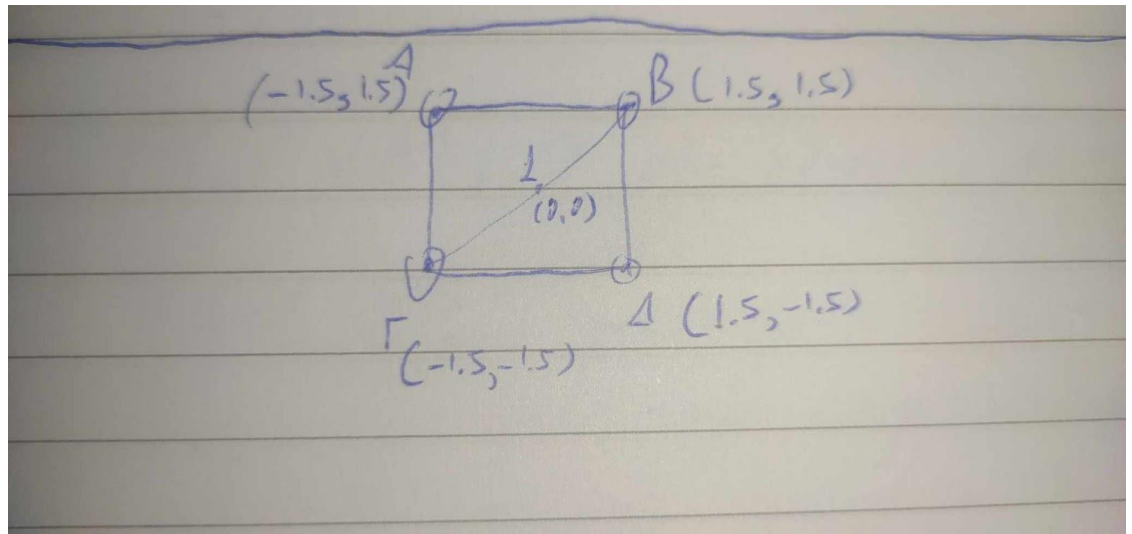 Α
(-1.5, 1.5)
Β (1.5, 1.5)
1
(0,0)
Γ
(-1.5, -1.5)
Δ (1.5, -1.5)